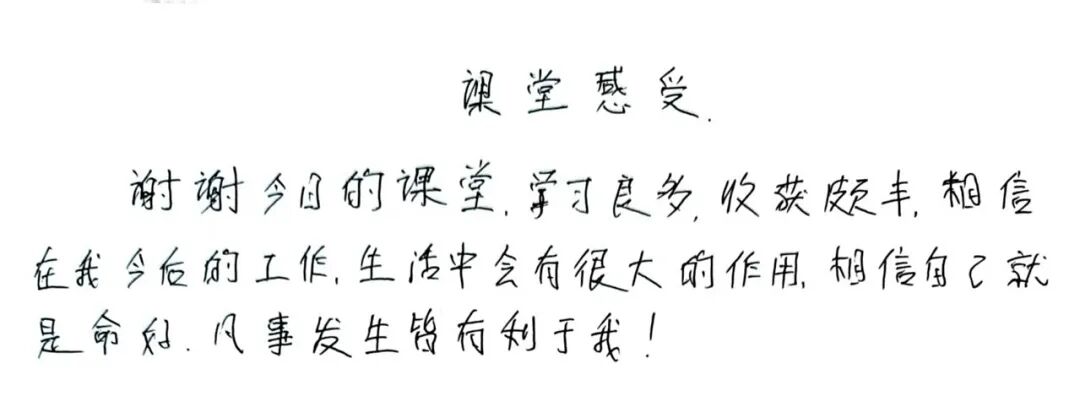 课堂感受.
谢谢今日的课堂,学习良多,收获颇丰,相信
在我今后的工作,生活中会有很大的作用,相信自己就
是命好.凡事发生皆有利于我!